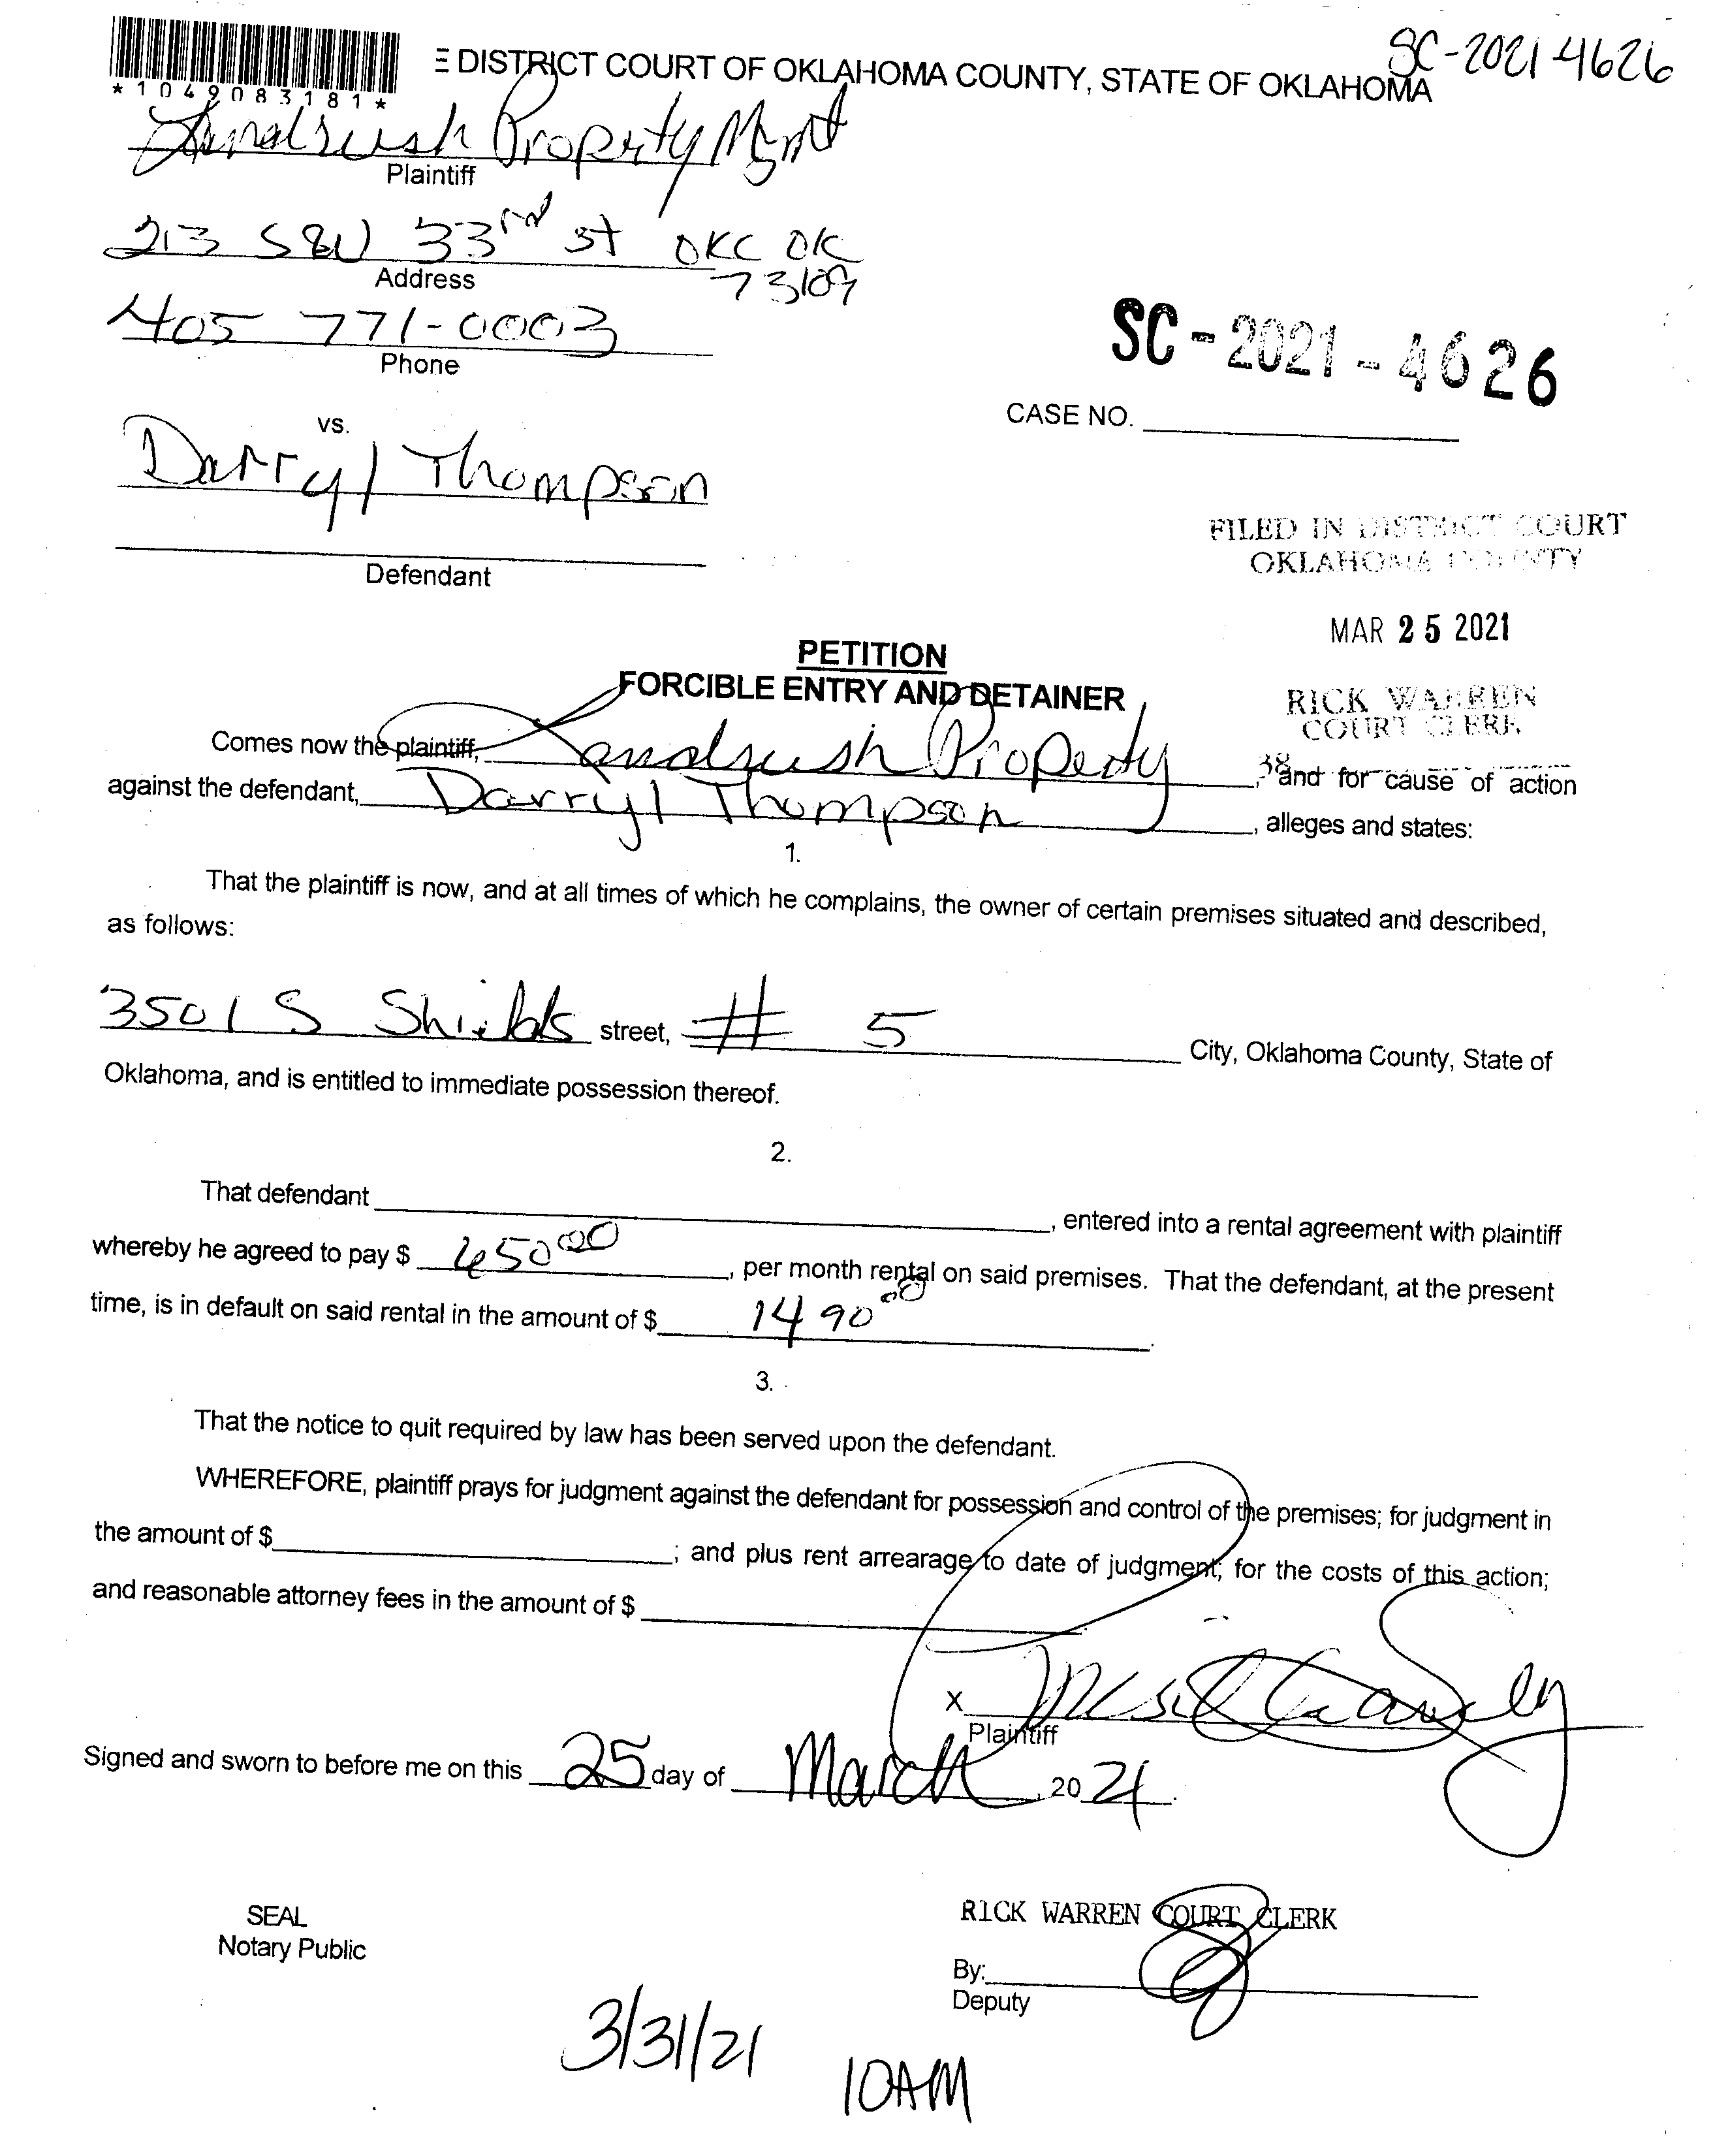 SC-2021-4626
DISTRICT COURT OF OKLAHOMA COUNTY, STATE OF OKLAHOMA
*1049083181*
Landrush Property Mgmt
Plaintiff
213 SW 33rd St OKC OK
73109
Address
405 771-0003
Phone
SC-2021-4626
CASE NO.
vs.
Darryl Thompson
Defendant
FILED IN DISTRICT COURT
OKLAHOMA COUNTY
MAR 25 2021
RICK WARREN
COURT CLERK
38
PETITION
FORCIBLE ENTRY AND DETAINER
Comes now the plaintiff, Landrush Property, and for cause of action
against the defendant, Darryl Thompson, alleges and states:
1.
That the plaintiff is now, and at all times of which he complains, the owner of certain premises situated and described,
as follows:
3501 S Shields street, # 5 City, Oklahoma County, State of
Oklahoma, and is entitled to immediate possession thereof.
2.
That defendant, entered into a rental agreement with plaintiff
whereby he agreed to pay $ 650 00, per month rental on said premises. That the defendant, at the present
time, is in default on said rental in the amount of $ 1490 00.
3.
That the notice to quit required by law has been served upon the defendant.
WHEREFORE, plaintiff prays for judgment against the defendant for possession and control of the premises; for judgment in
the amount of $; and plus rent arrearage to date of judgment; for the costs of this action;
and reasonable attorney fees in the amount of $
X
Plaintiff
Signed and sworn to before me on this 25 day of March, 2021.
SEAL
Notary Public
RICK WARREN COURT CLERK
By:
Deputy
3/31/21
10AM